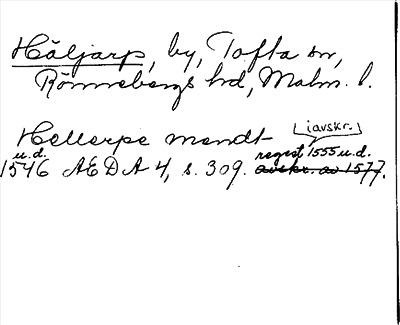 Häljarp, by, Tofta sn,
Rönnebergs hd, Malm. l.
Hellerpe mendt [i avskr.]
u.d. regest 1555 u.d.
1546 AEDA 4, s. 309. avskr. av 1577.